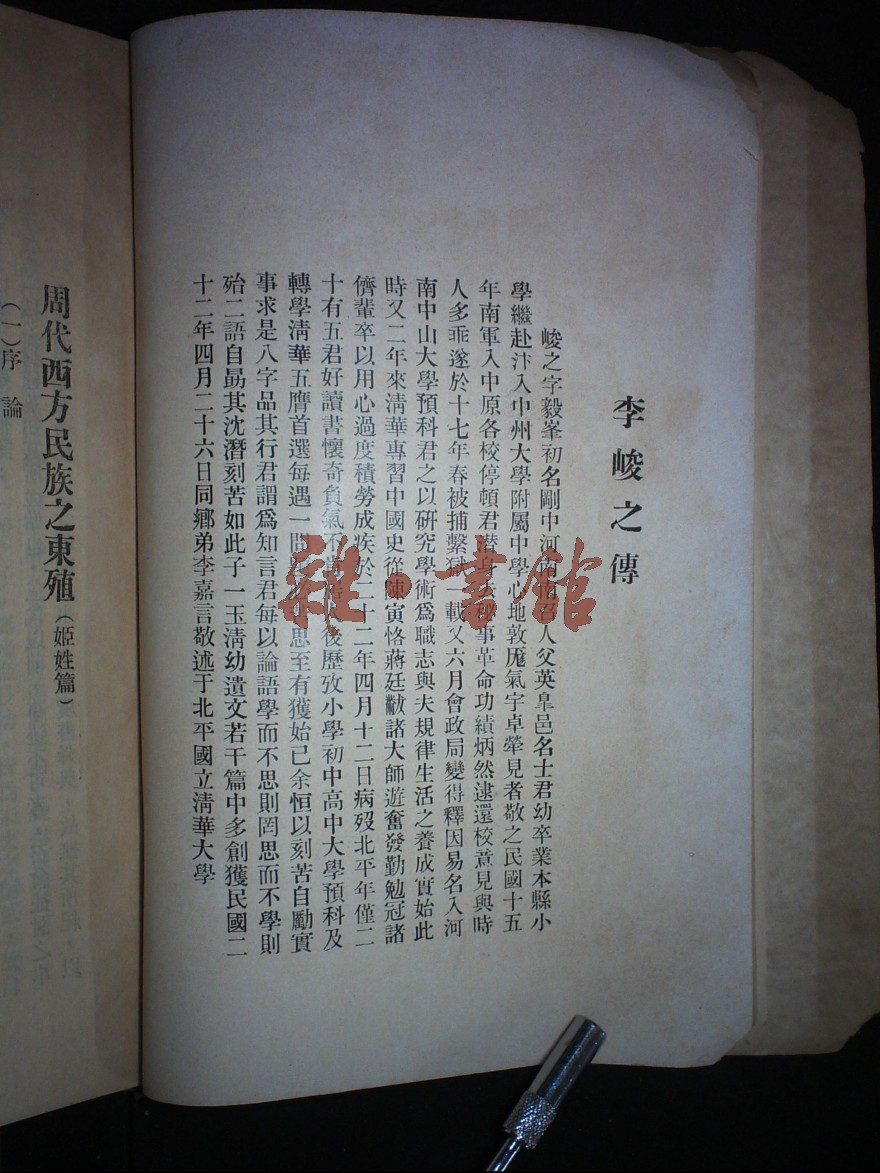 李峻之傳
峻之字毅峯初名剛中河南南召人父英臯邑名士君幼卒業本縣小
學繼赴汴入中州大學附屬中學心地敦厖氣宇卓犖見者敬之民國十五
年南軍入中原各校停頓君潛身秘事革命功績炳然逮還校意見與時
人多乖遂於十七年春被捕繫獄一載又六月會政局變得釋因易名入河
南中山大學預科君之以研究學術爲職志與夫規律生活之養成實始此
時又二年來淸華專習中國史從陳寅恪蔣廷黻諸大師遊奮發勤勉冠諸
儕輩卒以用心過度積勞成疾於二十二年四月十二日病歿北平年僅二
十有五君好讀書懷奇負氣不後歷攷小學初中高中大學預科及
轉學淸華五膺首選每遇一問思至有獲始已余恒以刻苦自勵實
事求是八字品其行君謂爲知言君每以論語學而不思則罔思而不學則
殆二語自勗其沈潛刻苦如此子一玉淸幼遺文若干篇中多創獲民國二
十二年四月二十六日同鄕弟李嘉言敬述于北平國立淸華大學
周代西方民族之東殖（姬姓篇）
（一）序論
雜·書館